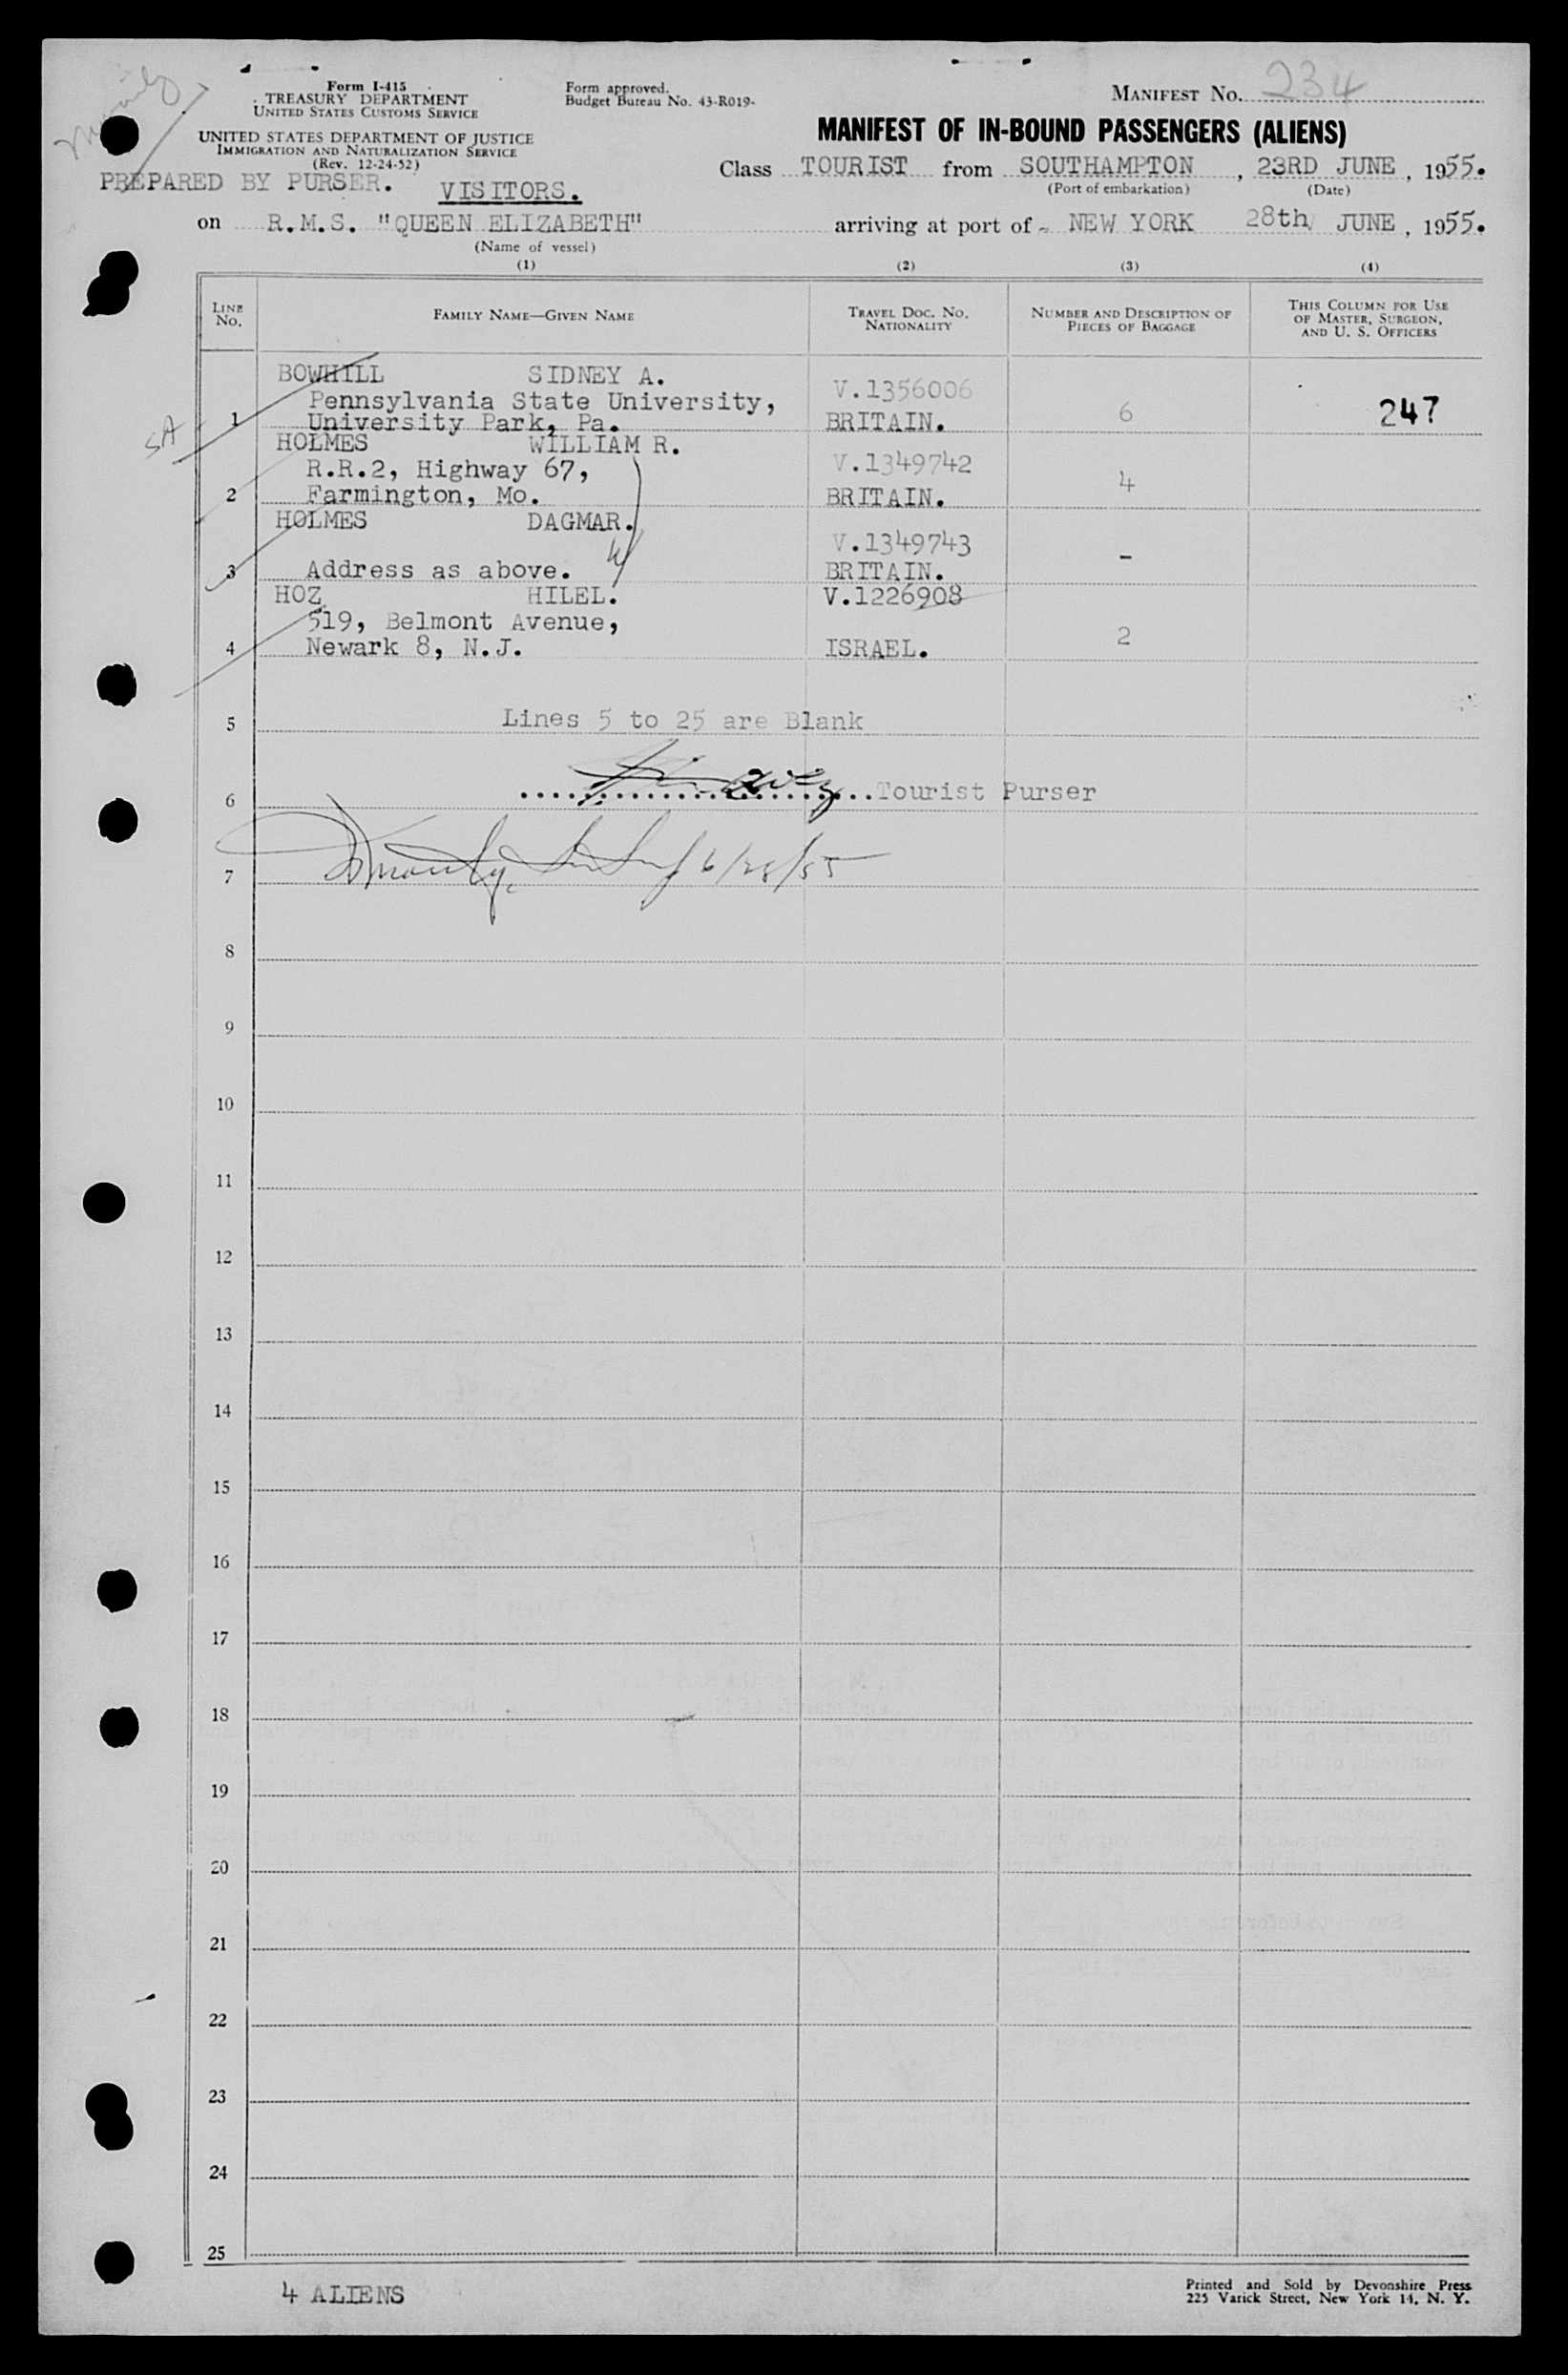 Form I-415
TREASURY DEPARTMENT
UNITED STATES CUSTOMS SERVICE
UNITED STATES DEPARTMENT OF JUSTICE
IMMIGRATION AND NATURALIZATION SERVICE
(Rev. 12-24-52)
PREPARED BY PURSER.
VISITORS.
Form approved.
Budget Bureau No. 43-R019-
MANIFEST NO. 234
MANIFEST OF IN-BOUND PASSENGERS (ALIENS)
Class TOURIST from SOUTHAMPTON, 23RD JUNE, 1955.
(Port of embarkation) (Date)
on R.M.S. "QUEEN ELIZABETH" arriving at port of NEW YORK 28th JUNE, 1955.
(Name of vessel)
(1) (2) (3) (4)
LINE NO. FAMILY NAME—GIVEN NAME TRAVEL DOC. NO. NATIONALITY NUMBER AND DESCRIPTION OF PIECES OF BAGGAGE THIS COLUMN FOR USE OF MASTER, SURGEON, AND U. S. OFFICERS
BOWHILL SIDNEY A.
Pennsylvania State University, V.1356006
SA 1 University Park, Pa. BRITAIN. 6 247
HOLMES WILLIAM R.
R.R.2, Highway 67, V.1349742
2 Farmington, Mo. BRITAIN. 4
HOLMES DAGMAR.
V.1349743
3 Address as above. BRITAIN. -
HOZ HILEL. V.1226908
519, Belmont Avenue,
4 Newark 8, N.J. ISRAEL. 2
5 Lines 5 to 25 are Blank
6 Tourist Purser
7 6/28/55
8
9
10
11
12
13
14
15
16
17
18
19
20
21
22
23
24
25
4 ALIENS
Printed and Sold by Devonshire Press
225 Varick Street, New York 14, N. Y.